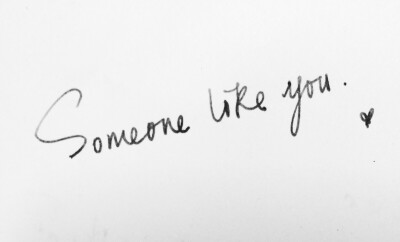 Someone like you.